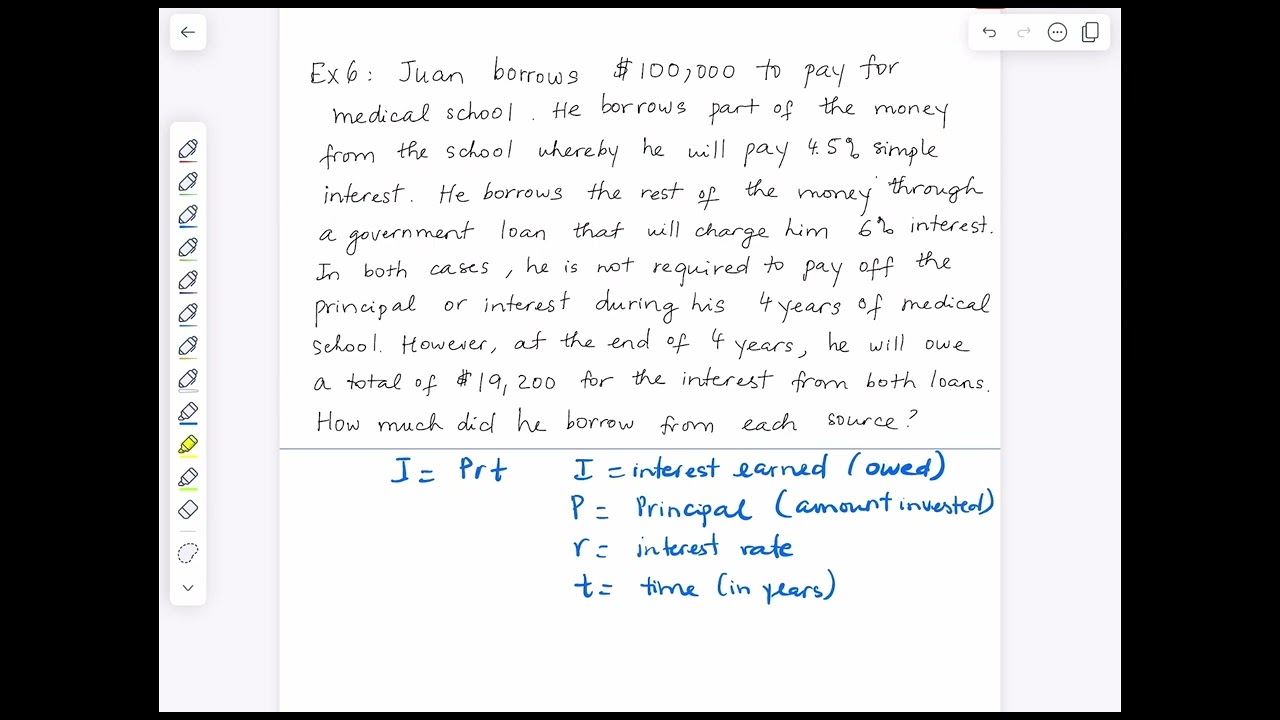 Ex 6: Juan borrows $100,000 to pay for
medical school. He borrows part of the money
from the school whereby he will pay 4.5% simple
interest. He borrows the rest of the money through
a government loan that will charge him 6% interest.
In both cases, he is not required to pay off the
principal or interest during his 4 years of medical
school. However, at the end of 4 years, he will owe
a total of $19,200 for the interest from both loans.
How much did he borrow from each source?
I = Prt I = interest earned (owed)
P = Principal (amount invested)
r = interest rate
t = time (in years)